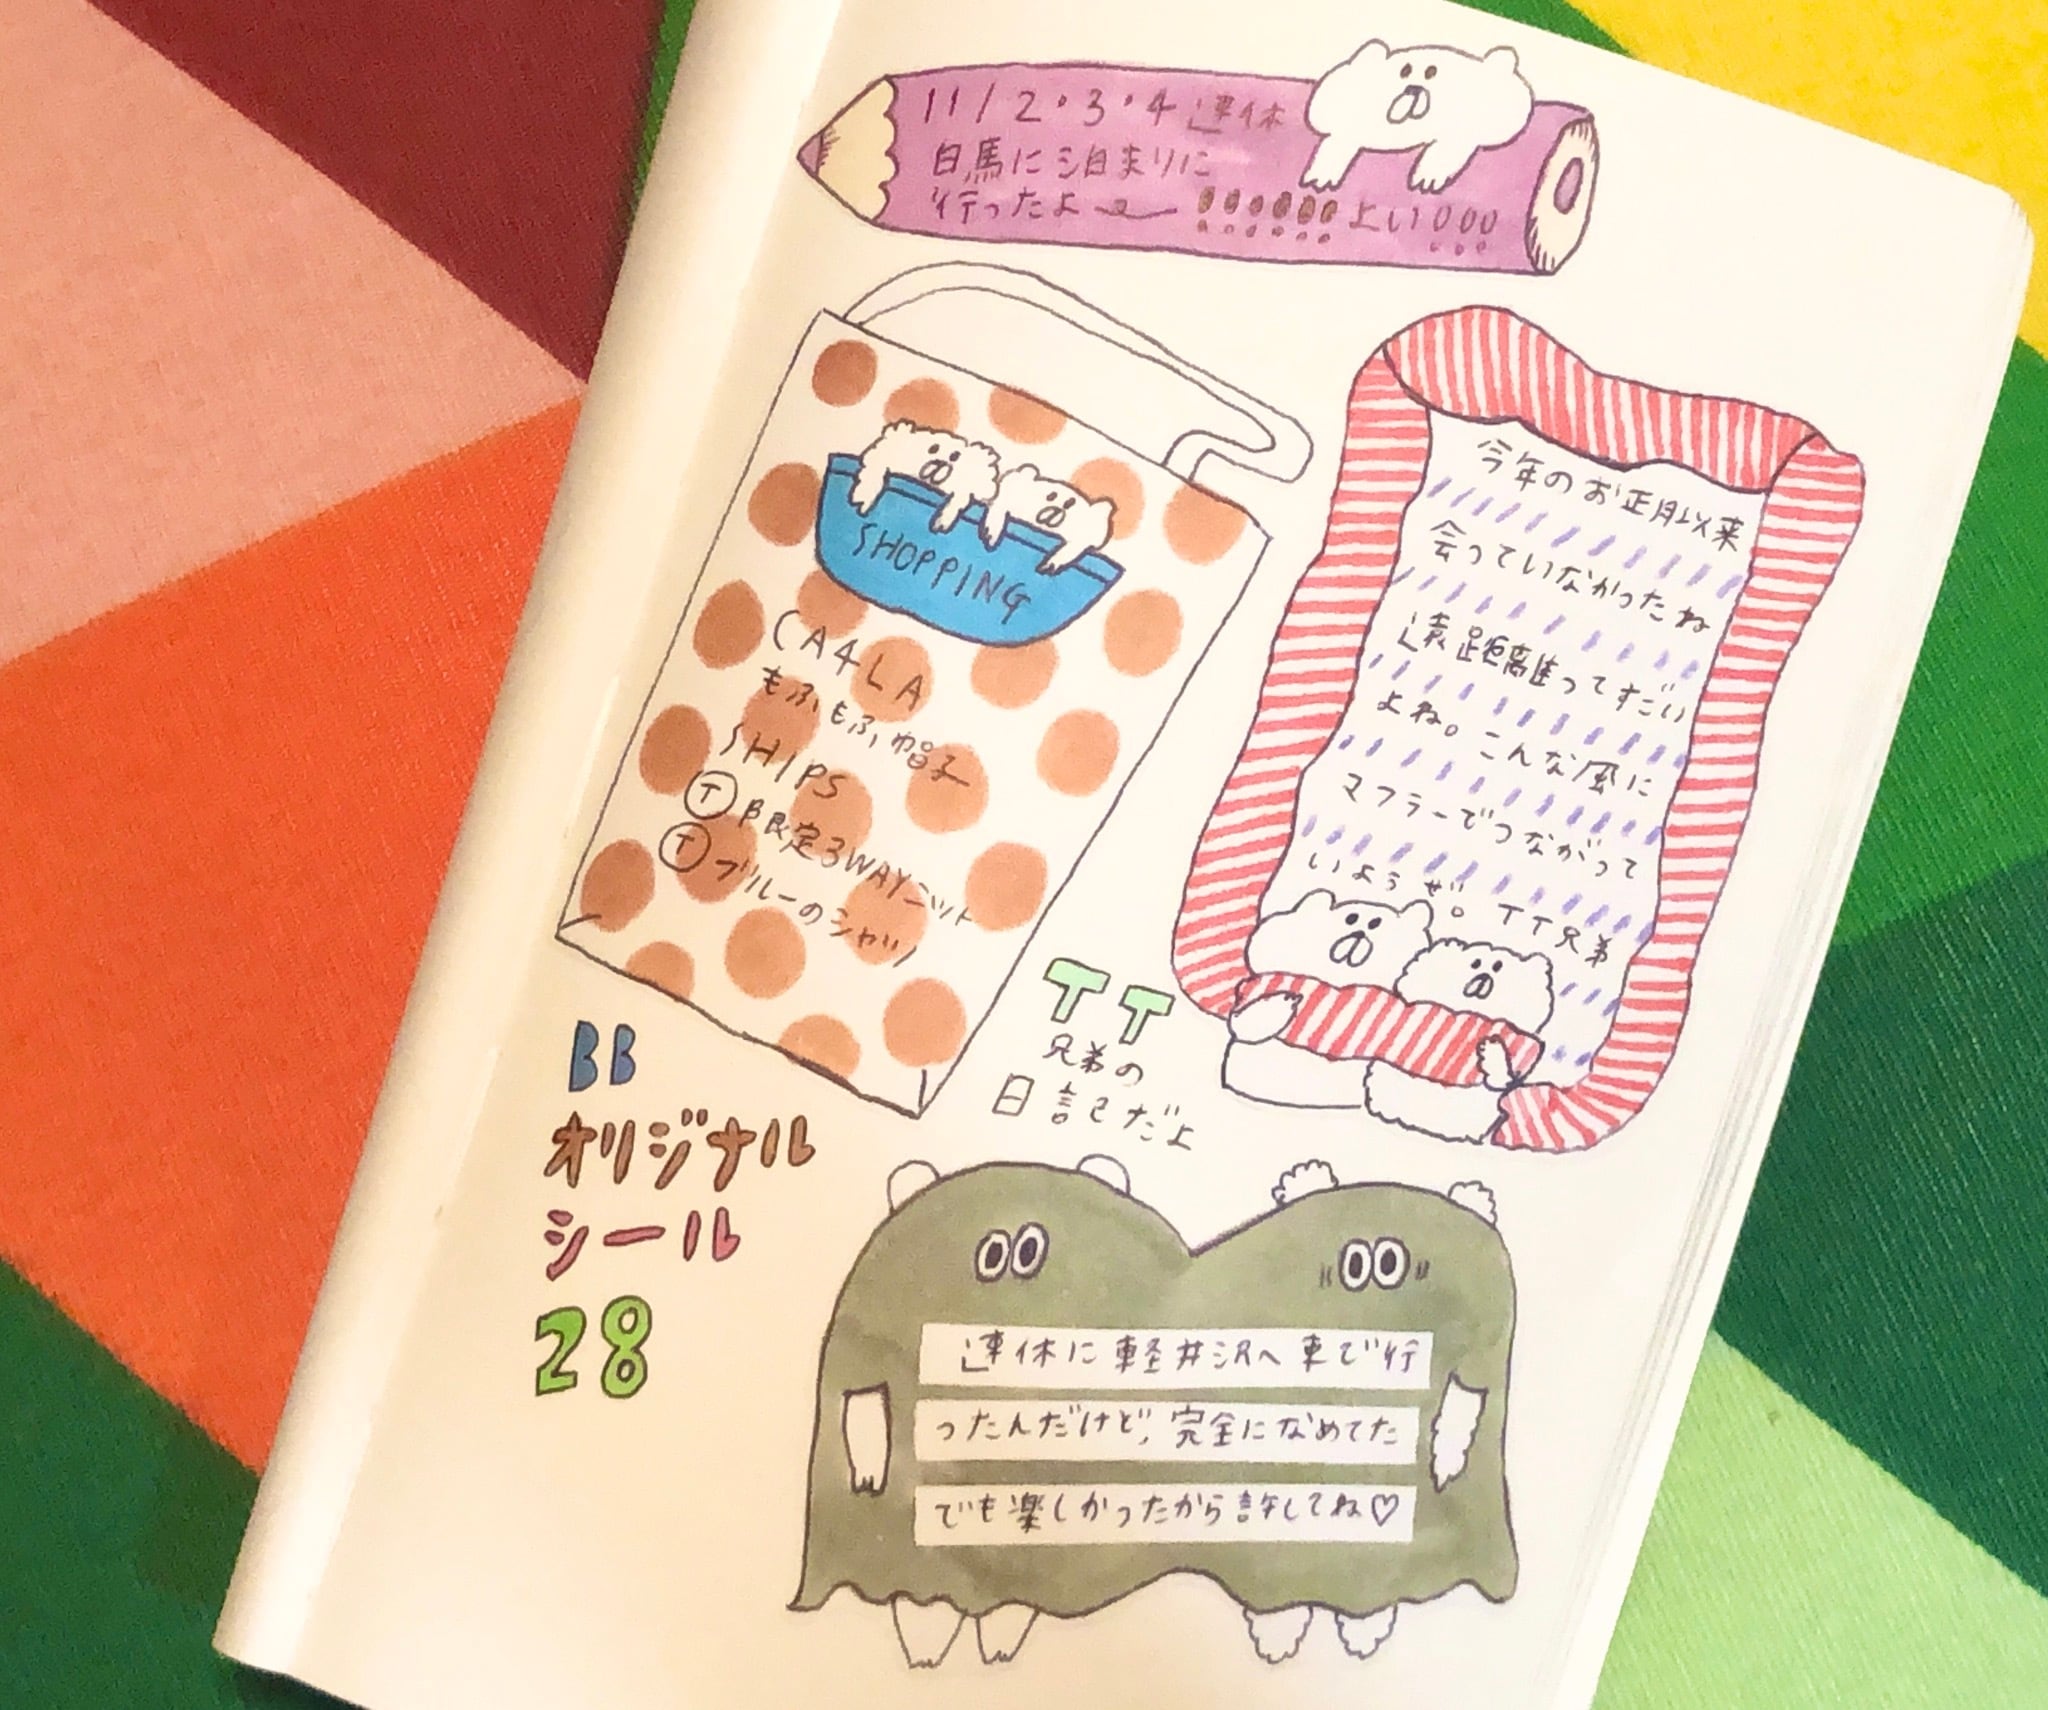 11/2・3・4連休
白馬に泊まりに
行ったよ〜!!!!!!よい!!!
SHOPPING
CA4LA
もふもふ帽子
SHIPS
Ⓣ限定3WAYニット
Ⓣブルーのシャツ
今年のお正月以来
会っていなかったね
遠距離って すごい
よね。こんな風に
マフラーでつながって
いようぜ。TT兄弟
TT
兄弟の
日記だよ
BB
オリジナル
シール
28
連休に軽井沢へ車で行
ったんだけど、完全になめてた
でも楽しかったから許してね♡